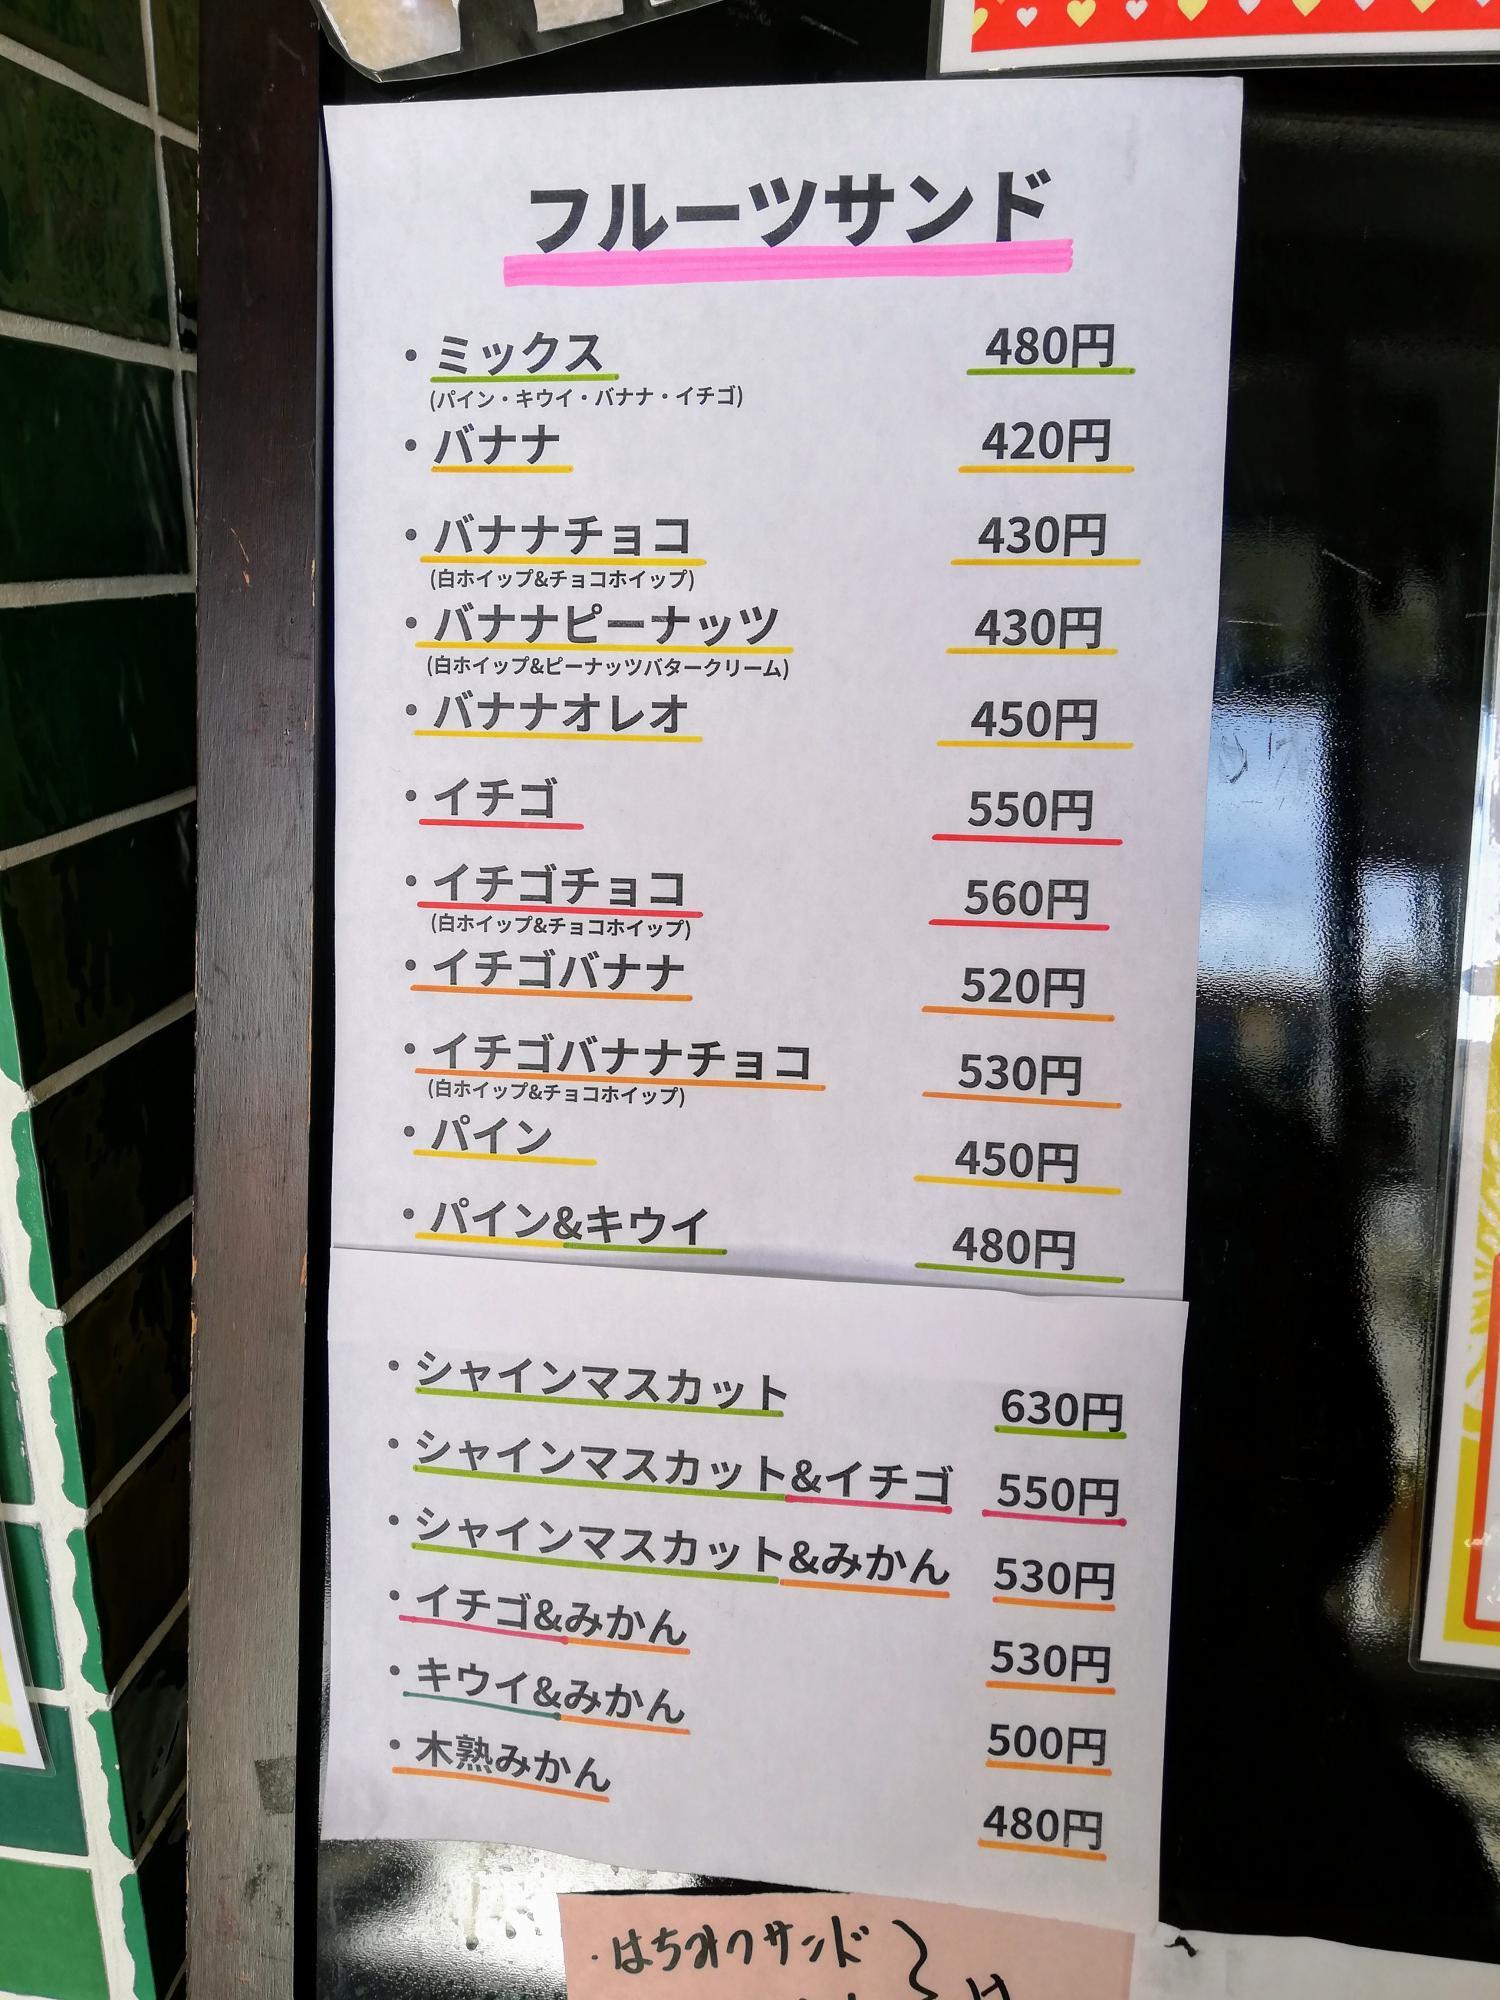 フルーツサンド
・ミックス 480円
(パイン・キウイ・バナナ・イチゴ)
・バナナ 420円
・バナナチョコ 430円
(白ホイップ&チョコホイップ)
・バナナピーナッツ 430円
(白ホイップ&ピーナッツバタークリーム)
・バナナオレオ 450円
・イチゴ 550円
・イチゴチョコ 560円
(白ホイップ&チョコホイップ)
・イチゴバナナ 520円
・イチゴバナナチョコ 530円
(白ホイップ&チョコホイップ)
・パイン 450円
・パイン&キウイ 480円
・シャインマスカット 630円
・シャインマスカット&イチゴ 550円
・シャインマスカット&みかん 530円
・イチゴ&みかん 530円
・キウイ&みかん 500円
・木熟みかん 480円
・はちみつサンド